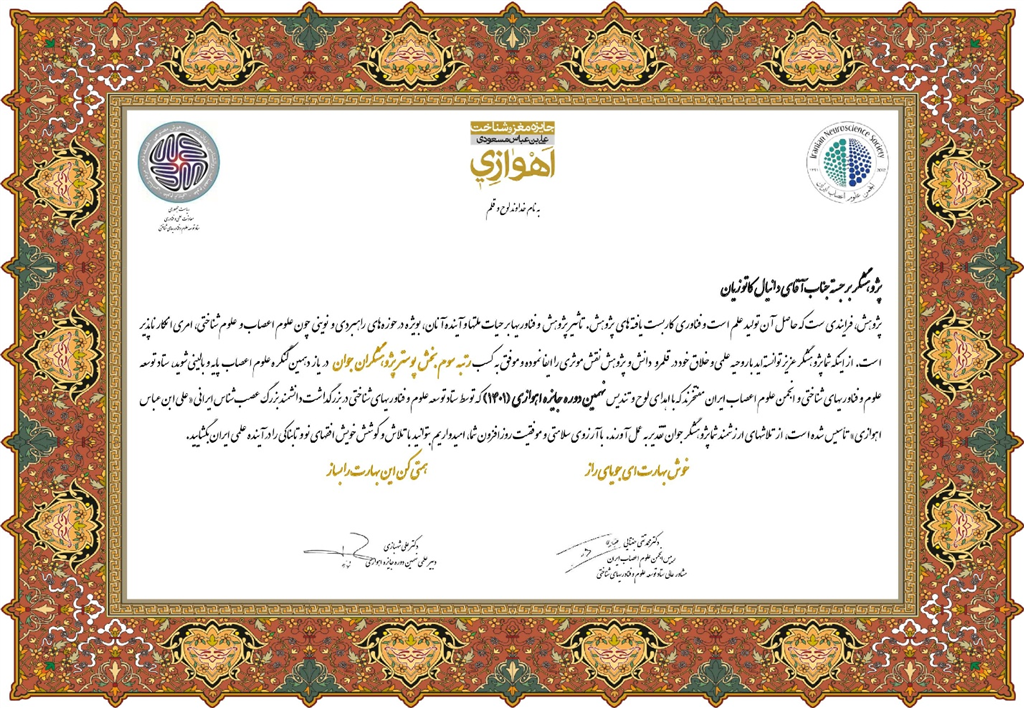 جایزه مغز و شناخت
علی بن عباس مسعودی
اهوازی
Iranian Neuroscience Society
انجمن علوم اعصاب ایران
ریاست جمهوری
معاونت علمی و فناوری
ستاد توسعه علوم و فناوریهای شناختی
به نام خداوند لوح و قلم
پژوهشگر برجسته جناب آقای دانیال کاتوزیان
پژوهش، فرایندی ست که حاصل آن تولید علم است و فناوری کاربست یافته های پژوهش. تاثیر پژوهش و فناوریها بر حیات ملتها و آینده آنان، بویژه در حوزه های راهبردی و نوینی چون علوم اعصاب و علوم شناختی، امری انکار ناپذیر
است. از اینکه شما پژوهشگر عزیز توانسته اید با روحیه علمی و خلاق خود در قلمرو دانش و پژوهش نقش موثری را ایفا نموده و موفق به کسب رتبه سوم بخش پوستر پژوهشگران جوان در یازدهمین کنگره علوم اعصاب پایه و بالینی شوید، ستاد توسعه
علوم و فناوریهای شناختی و انجمن علوم اعصاب ایران مفتخرند که با اهدای لوح و تندیس نهمین دوره جایزه اهوازی (۱۴۰۱) که توسط ستاد توسعه علوم و فناوریهای شناختی در بزرگداشت دانشمند بزرگ عصب شناس ایرانی «علی ابن عباس
اهوازی» تاسیس شده است، از تلاشهای ارزشمند شما پژوهشگر جوان تقدیر به عمل آورند. با آرزوی سلامتی و موفقیت روزافزون شما، امیدواریم بتوانید با تلاش و کوشش خویش افقهای نو و تابناکی را در آینده علمی ایران بگشایید.
خوش بهارت ای جویای راز
همتی کن این بهارت را بساز
دکتر محمدتقی جغتایی
رییس انجمن علوم اعصاب ایران
مشاور عالی ستاد توسعه علوم و فناوریهای شناختی
دکتر علی شهبازی
دبیر علمی نهمین دوره جایزه اهوازی